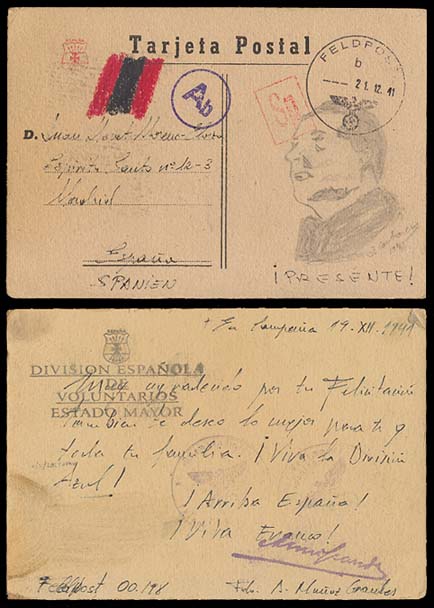 Tarjeta Postal
FELDPOST
b
21.12.41
Ab
Sp
D. Juan
Espíritu Santo nº 12-3
Madrid
España
SPANIEN
¡PRESENTE!
+ En Campaña 19-XII-1941
DIVISION ESPAÑOLA
DE
VOLUNTARIOS
ESTADO MAYOR
agradecido por tu Felicitación
te deseo lo mejor para ti y
toda tu familia. ¡Viva la División
Azul!
¡Arriba España!
¡Viva Franco!
Feldpost 00.198
Fdo. A. Muñoz Grandes